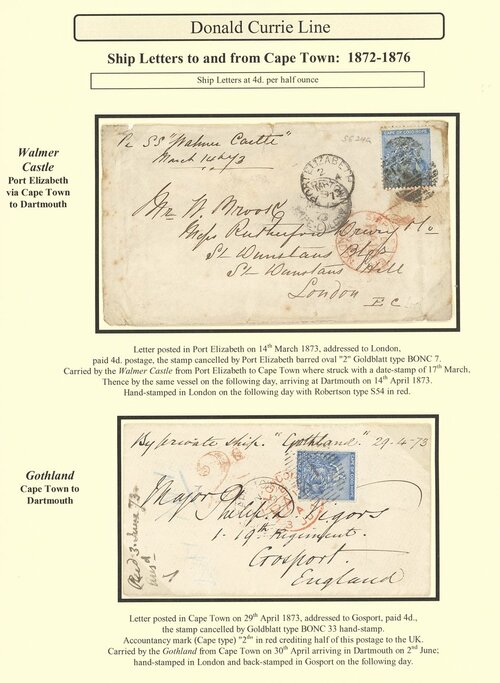 Donald Currie Line
Ship Letters to and from Cape Town:  1872-1876
Ship Letters at 4d. per half ounce
Walmer
Castle
Port Elizabeth
via Cape Town
to Dartmouth
SE24a
Pr SS "Walmer Castle"
March 14th/73
PORT ELIZABETH
CAPE OF GOOD HOPE
Mr W. Brooks
Messrs Rutherford Drury & Co
St Dunstans Bldgs
St Dunstans Hill
London
E C
Letter posted in Port Elizabeth on 14th March 1873, addressed to London,
paid 4d. postage, the stamp cancelled by Port Elizabeth barred oval "2" Goldblatt type BONC 7.
Carried by the Walmer Castle from Port Elizabeth to Cape Town where struck with a date-stamp of 17th March.
Thence by the same vessel on the following day, arriving at Dartmouth on 14th April 1873.
Hand-stamped in London on the following day with Robertson type S54 in red.
Gothland
Cape Town to
Dartmouth
By private ship. "Gothland" 29-4-73
Major
Philip D. Vigors
1-19th Regiment.
Gosport.
England
Recd 3 June 73
Letter posted in Cape Town on 29th April 1873, addressed to Gosport, paid 4d.,
the stamp cancelled by Goldblatt type BONC 33 hand-stamp.
Accountancy mark (Cape type) "2ds" in red crediting half of this postage to the UK.
Carried by the Gothland from Cape Town on 30th April arriving in Dartmouth on 2nd June;
hand-stamped in London and back-stamped in Gosport on the following day.